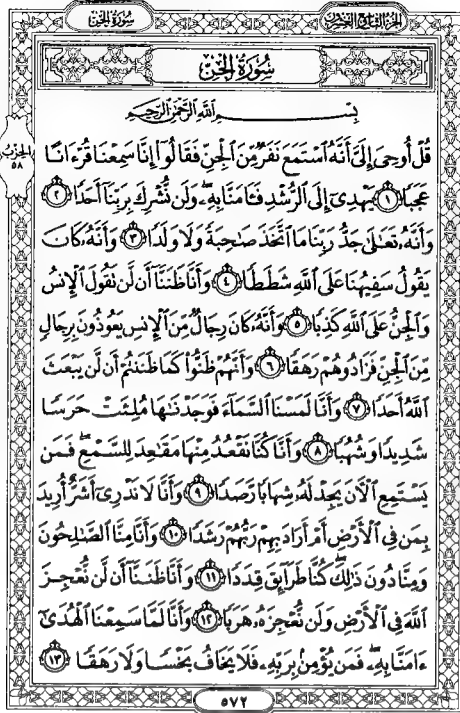 الجزء التاسع والعشرون
سُورَةُ الجِنّ
سُورَةُ الجِنّ
بِسْمِ ٱللَّهِ ٱلرَّحْمَٰنِ ٱلرَّحِيمِ
الحِزْب
٥٨
قُلْ أُوحِىَ إِلَىَّ أَنَّهُ ٱسْتَمَعَ نَفَرٌ مِّنَ ٱلْجِنِّ فَقَالُوٓا۟ إِنَّا سَمِعْنَا قُرْءَانًا
عَجَبًا ١ يَهْدِىٓ إِلَى ٱلرُّشْدِ فَـَٔامَنَّا بِهِۦ ۖ وَلَن نُّشْرِكَ بِرَبِّنَآ أَحَدًا ٢
وَأَنَّهُۥ تَعَٰلَىٰ جَدُّ رَبِّنَا مَا ٱتَّخَذَ صَٰحِبَةً وَلَا وَلَدًا ٣ وَأَنَّهُۥ كَانَ
يَقُولُ سَفِيهُنَا عَلَى ٱللَّهِ شَطَطًا ٤ وَأَنَّا ظَنَنَّآ أَن لَّن تَقُولَ ٱلْإِنسُ
وَٱلْجِنُّ عَلَى ٱللَّهِ كَذِبًا ٥ وَأَنَّهُۥ كَانَ رِجَالٌ مِّنَ ٱلْإِنسِ يَعُوذُونَ بِرِجَالٍ
مِّنَ ٱلْجِنِّ فَزَادُوهُمْ رَهَقًا ٦ وَأَنَّهُمْ ظَنُّوا۟ كَمَا ظَنَنتُمْ أَن لَّن يَبْعَثَ
ٱللَّهُ أَحَدًا ٧ وَأَنَّا لَمَسْنَا ٱلسَّمَآءَ فَوَجَدْنَٰهَا مُلِئَتْ حَرَسًا
شَدِيدًا وَشُهُبًا ٨ وَأَنَّا كُنَّا نَقْعُدُ مِنْهَا مَقَٰعِدَ لِلسَّمْعِ ۖ فَمَن
يَسْتَمِعِ ٱلْـَٔانَ يَجِدْ لَهُۥ شِهَابًا رَّصَدًا ٩ وَأَنَّا لَا نَدْرِىٓ أَشَرٌّ أُرِيدَ
بِمَن فِى ٱلْأَرْضِ أَمْ أَرَادَ بِهِمْ رَبُّهُمْ رَشَدًا ١٠ وَأَنَّا مِنَّا ٱلصَّٰلِحُونَ
وَمِنَّا دُونَ ذَٰلِكَ ۖ كُنَّا طَرَآئِقَ قِدَدًا ١١ وَأَنَّا ظَنَنَّآ أَن لَّن نُّعْجِزَ
ٱللَّهَ فِى ٱلْأَرْضِ وَلَن نُّعْجِزَهُۥ هَرَبًا ١٢ وَأَنَّا لَمَّا سَمِعْنَا ٱلْهُدَىٰٓ
ءَامَنَّا بِهِۦ ۖ فَمَن يُؤْمِنۢ بِرَبِّهِۦ فَلَا يَخَافُ بَخْسًا وَلَا رَهَقًا ١٣
٥٧٢